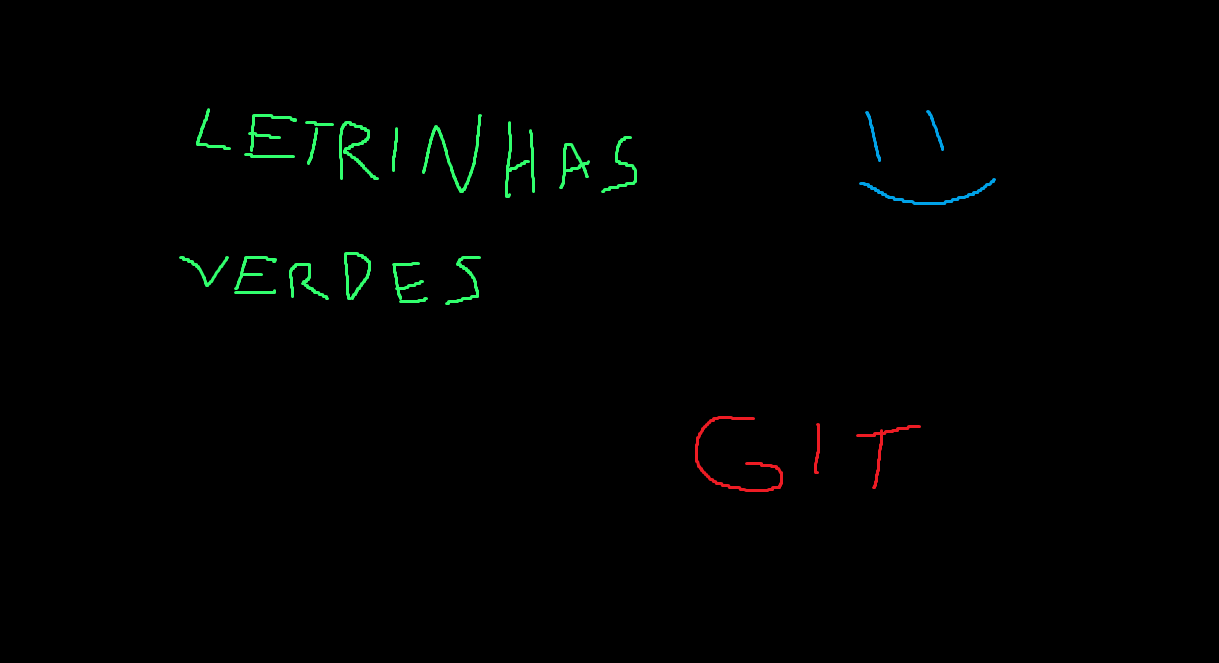 LETRINHAS
VERDES
GIT